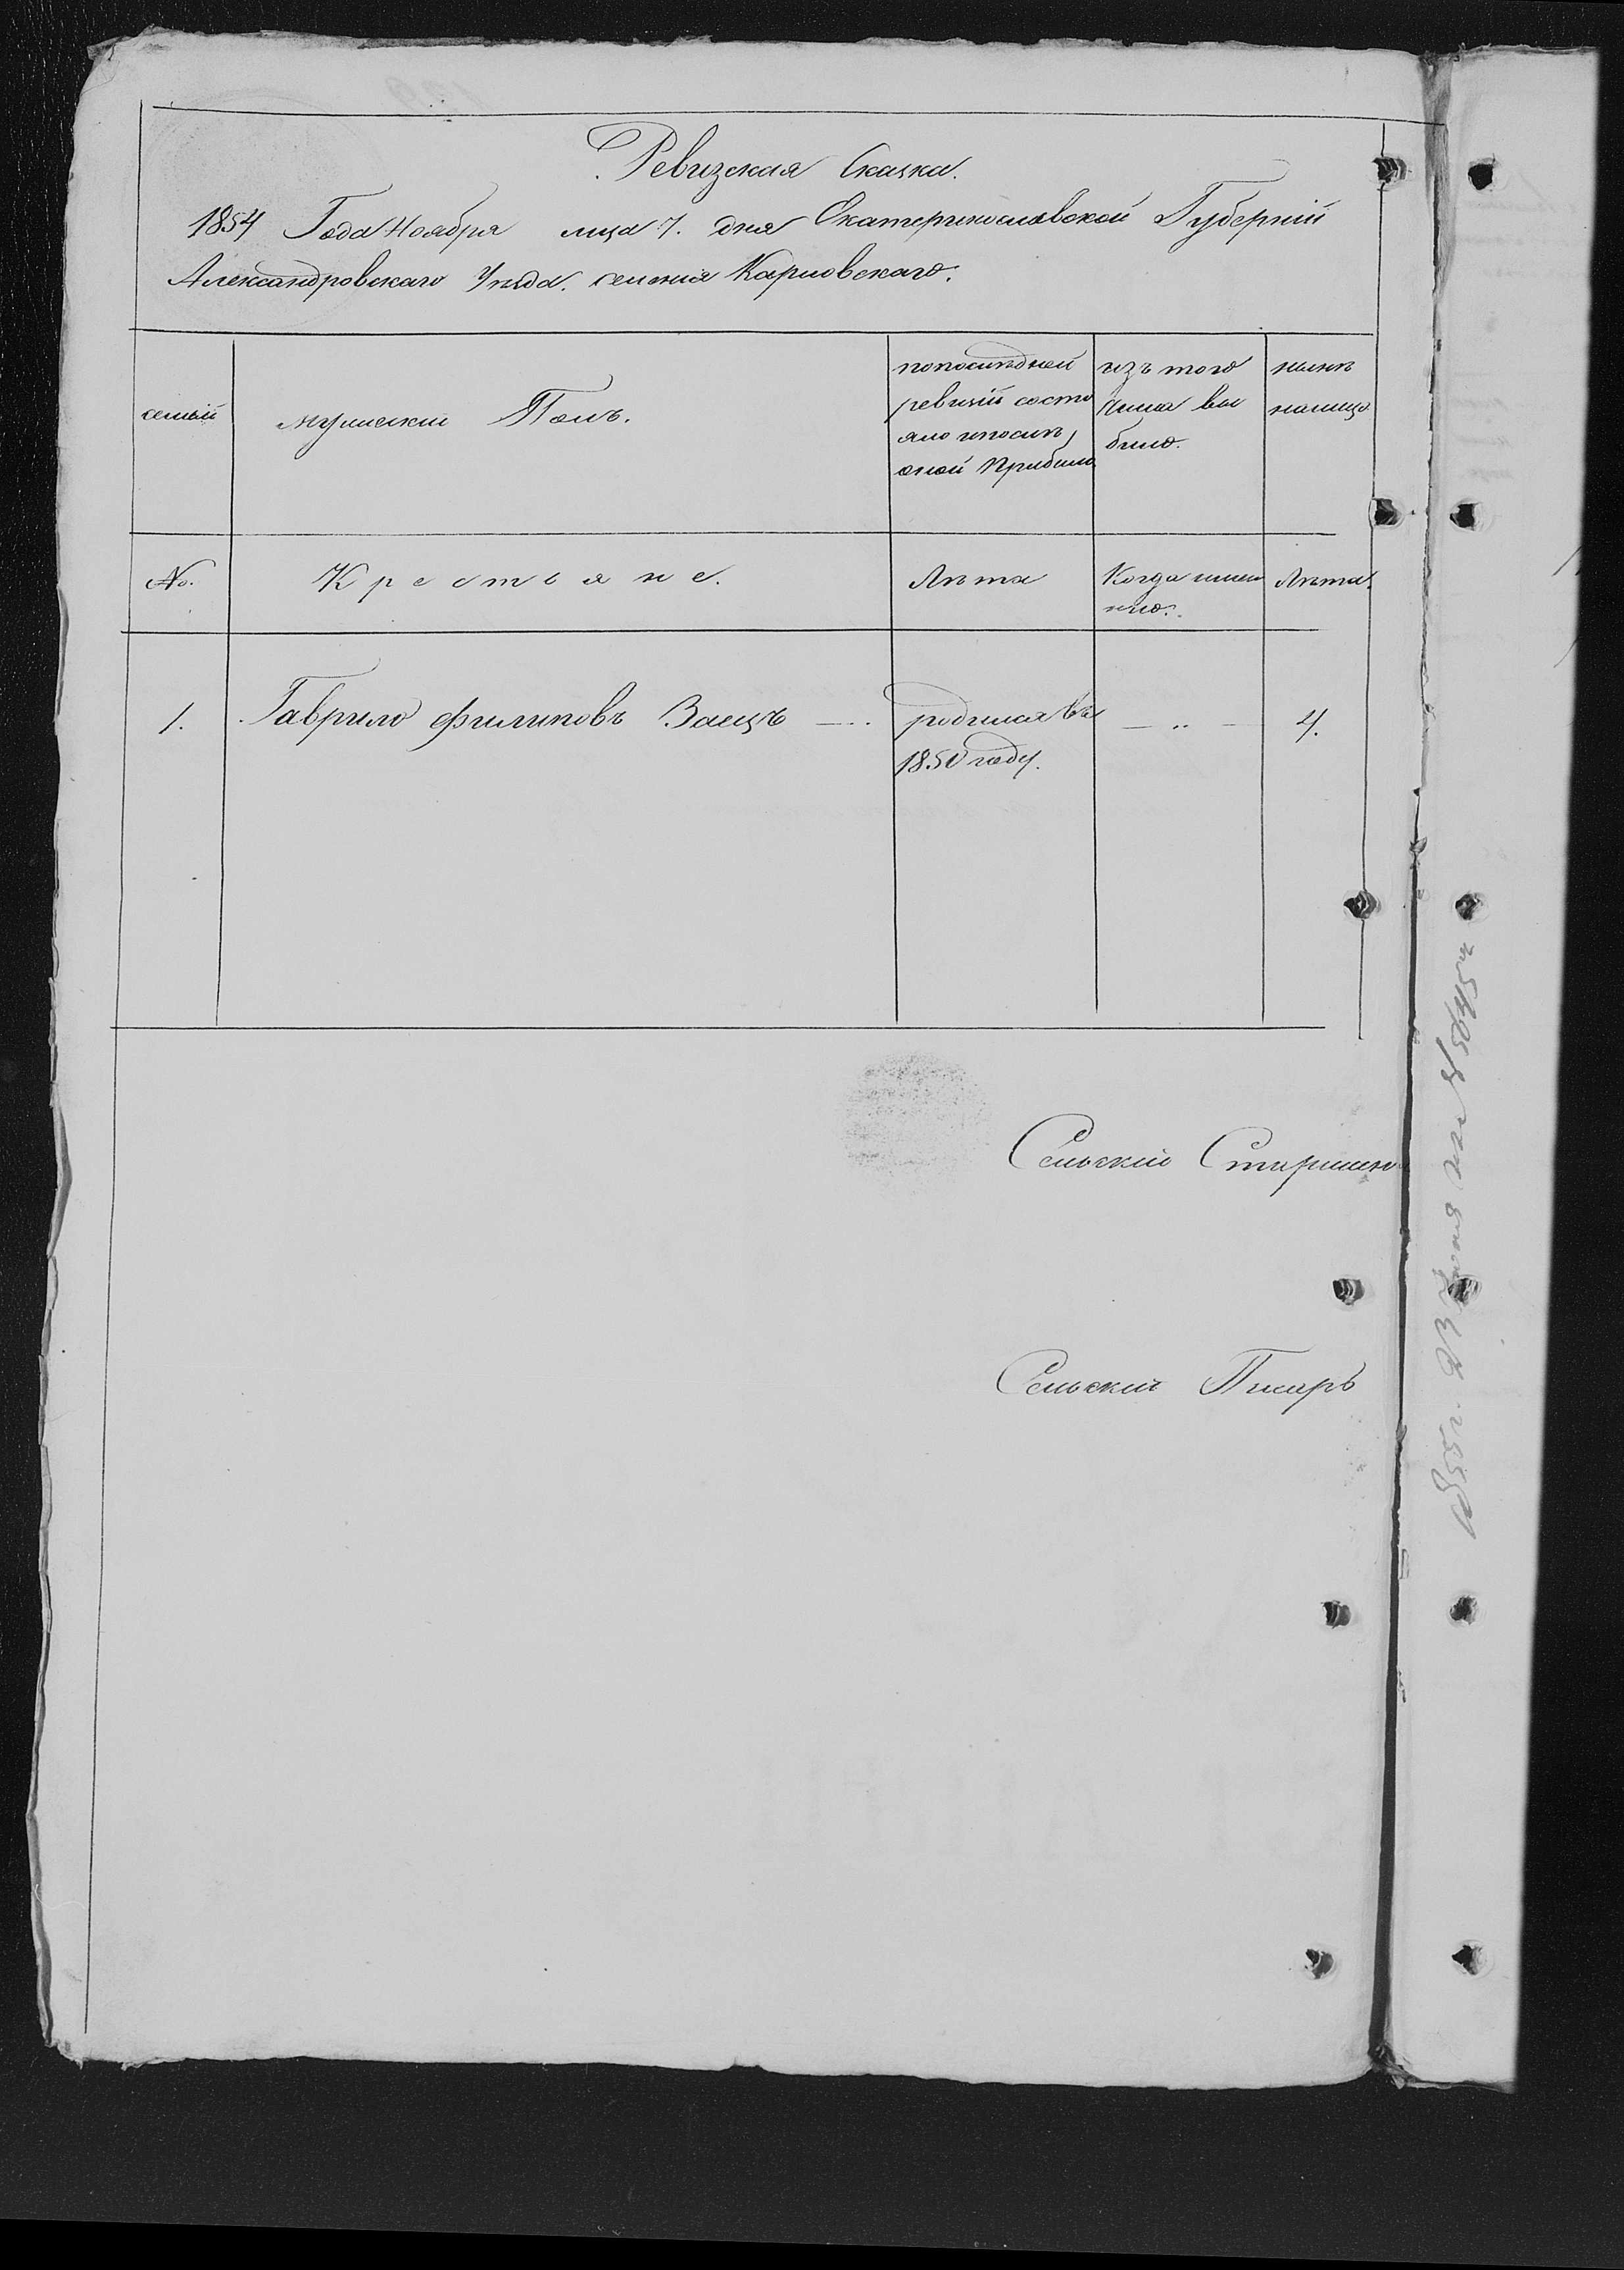 Ревизская Сказка.
1854 Года Ноября мца 7. дня Екатеринославской Губерніи
Александровскаго Уезда. селенія Карловскаго.
семьи
мужескій Полъ.
попоследней
ревизіи состо
яло ипослѣ
оной прибыло
изъ того
числа вы
было.
нынѣ
налицо
No.
Крестьяне.
Лѣта
Когда имен
но.
Лѣта.
1.
Гаврило Филиповъ Заецъ
родился въ
1850 году.
— „ —
4.
Сельскій Старшина
Сельскій Писарь
1855 г. 23 Іюня на №5645